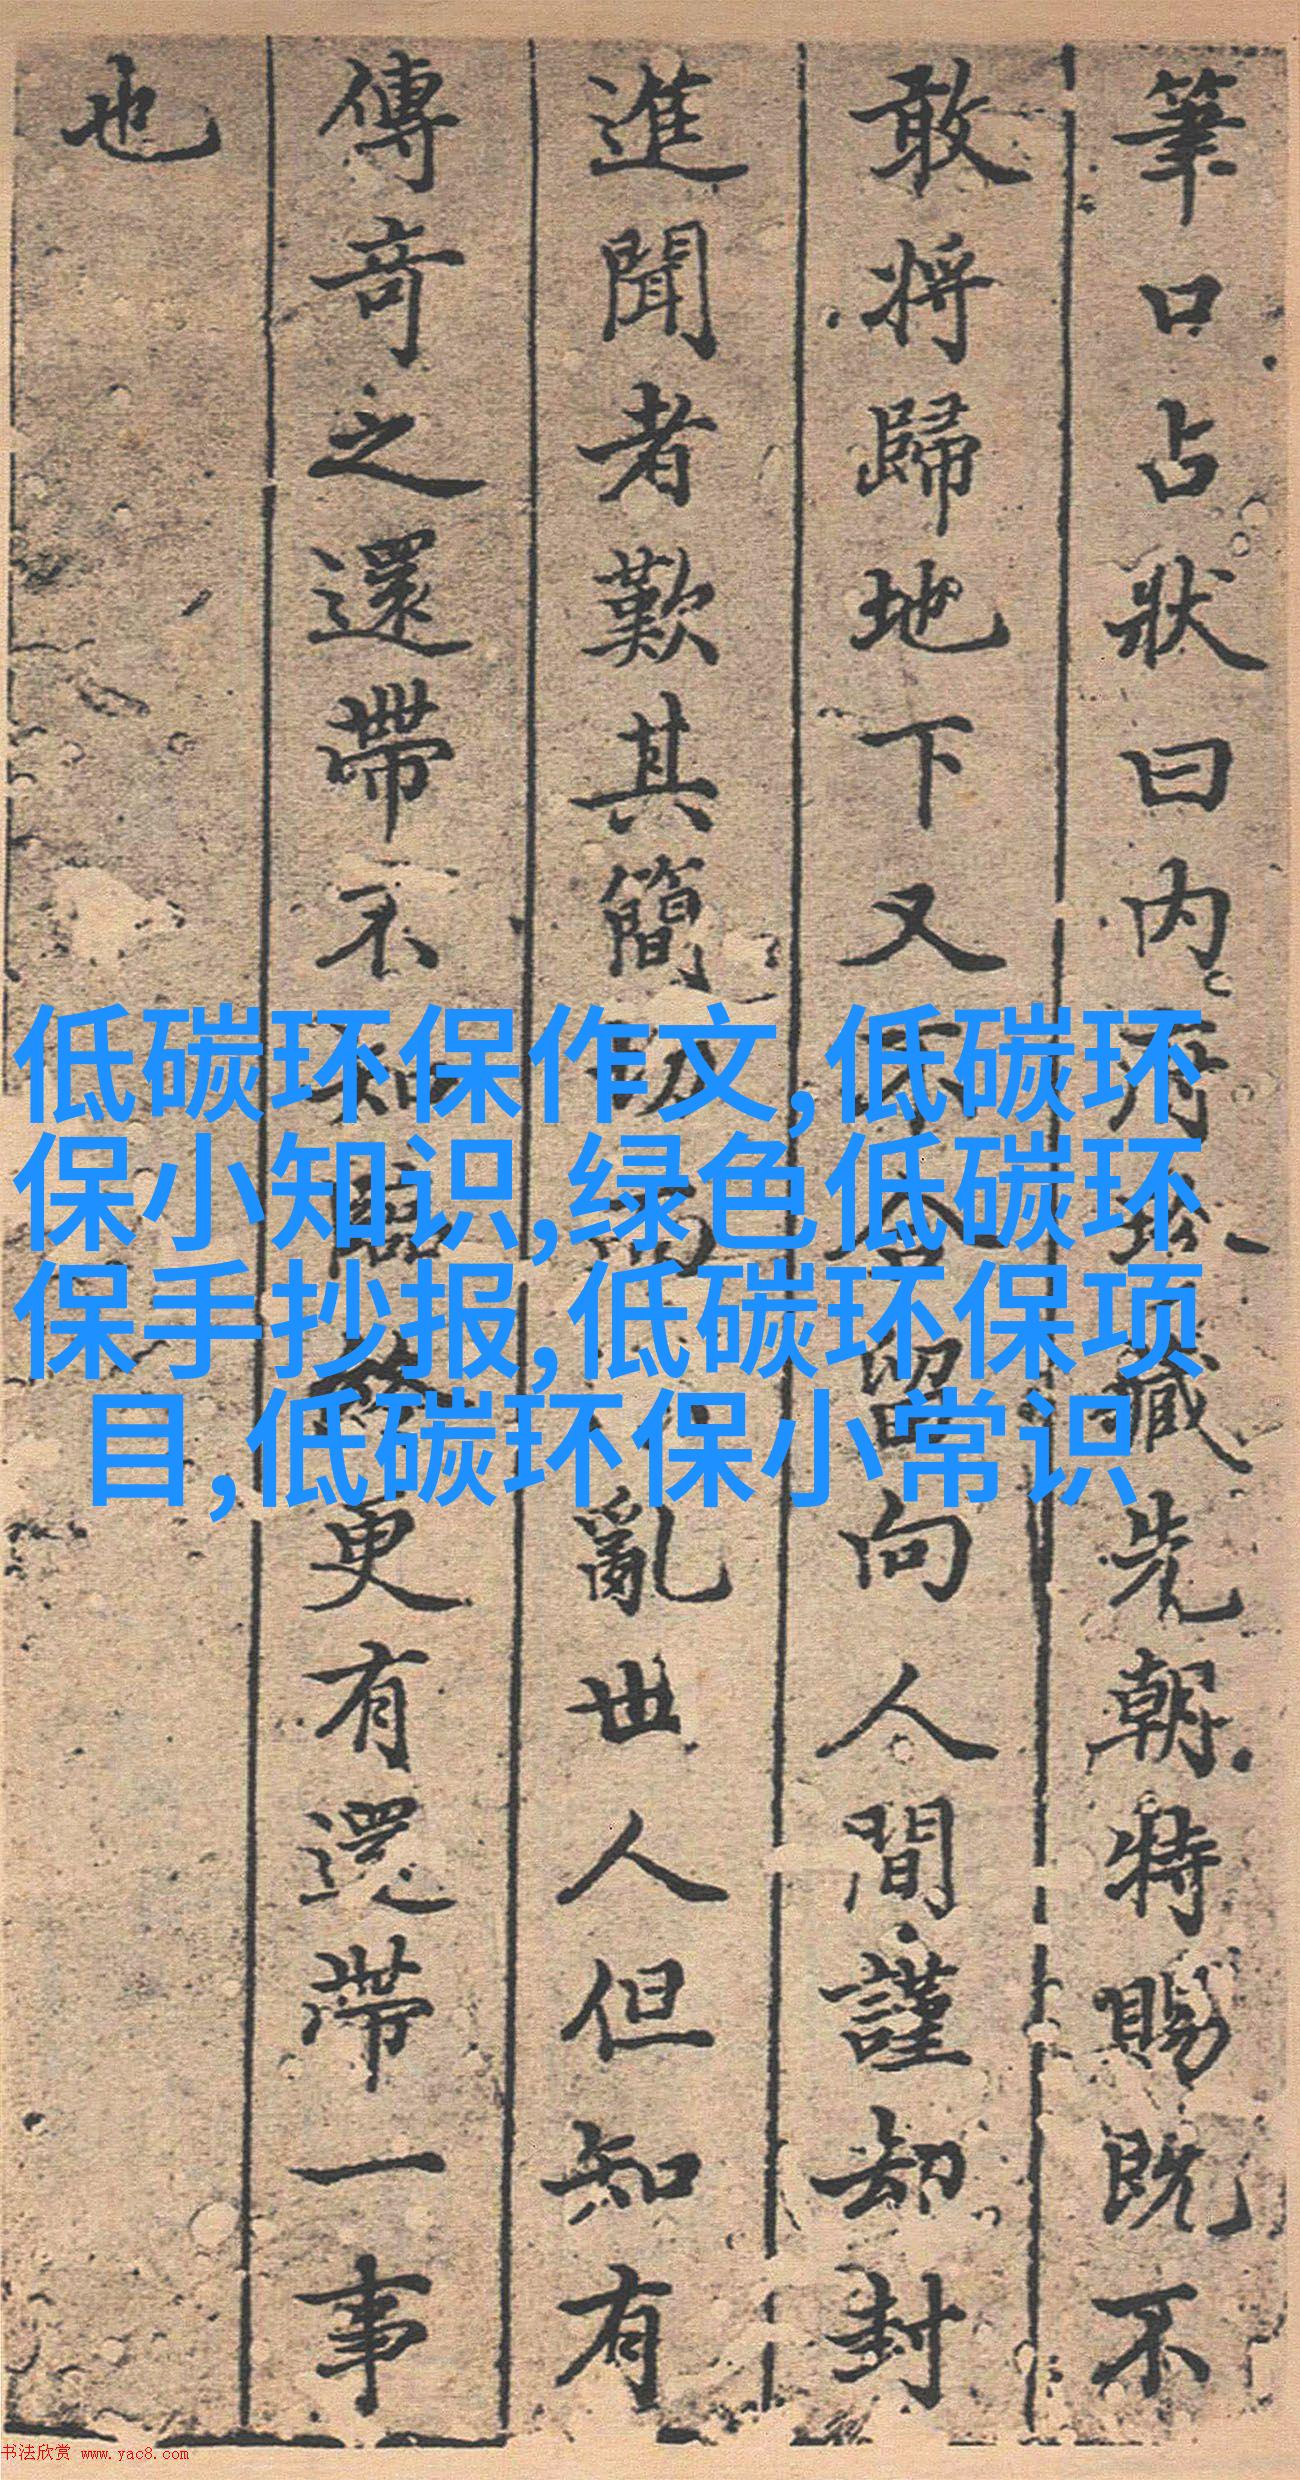 筆口占狀曰内府珍藏先朝特賜既不
敢將歸地下又不合留向人間謹却封
進聞者歎其簡切而亂世人但知有
傳奇之還帶不知臨終更有還帶一事
也
低碳环保作文,低碳环
保小知识,绿色低碳环
保手抄报,低碳环保项
目,低碳环保小常识
书法欣赏 www.yac8.com